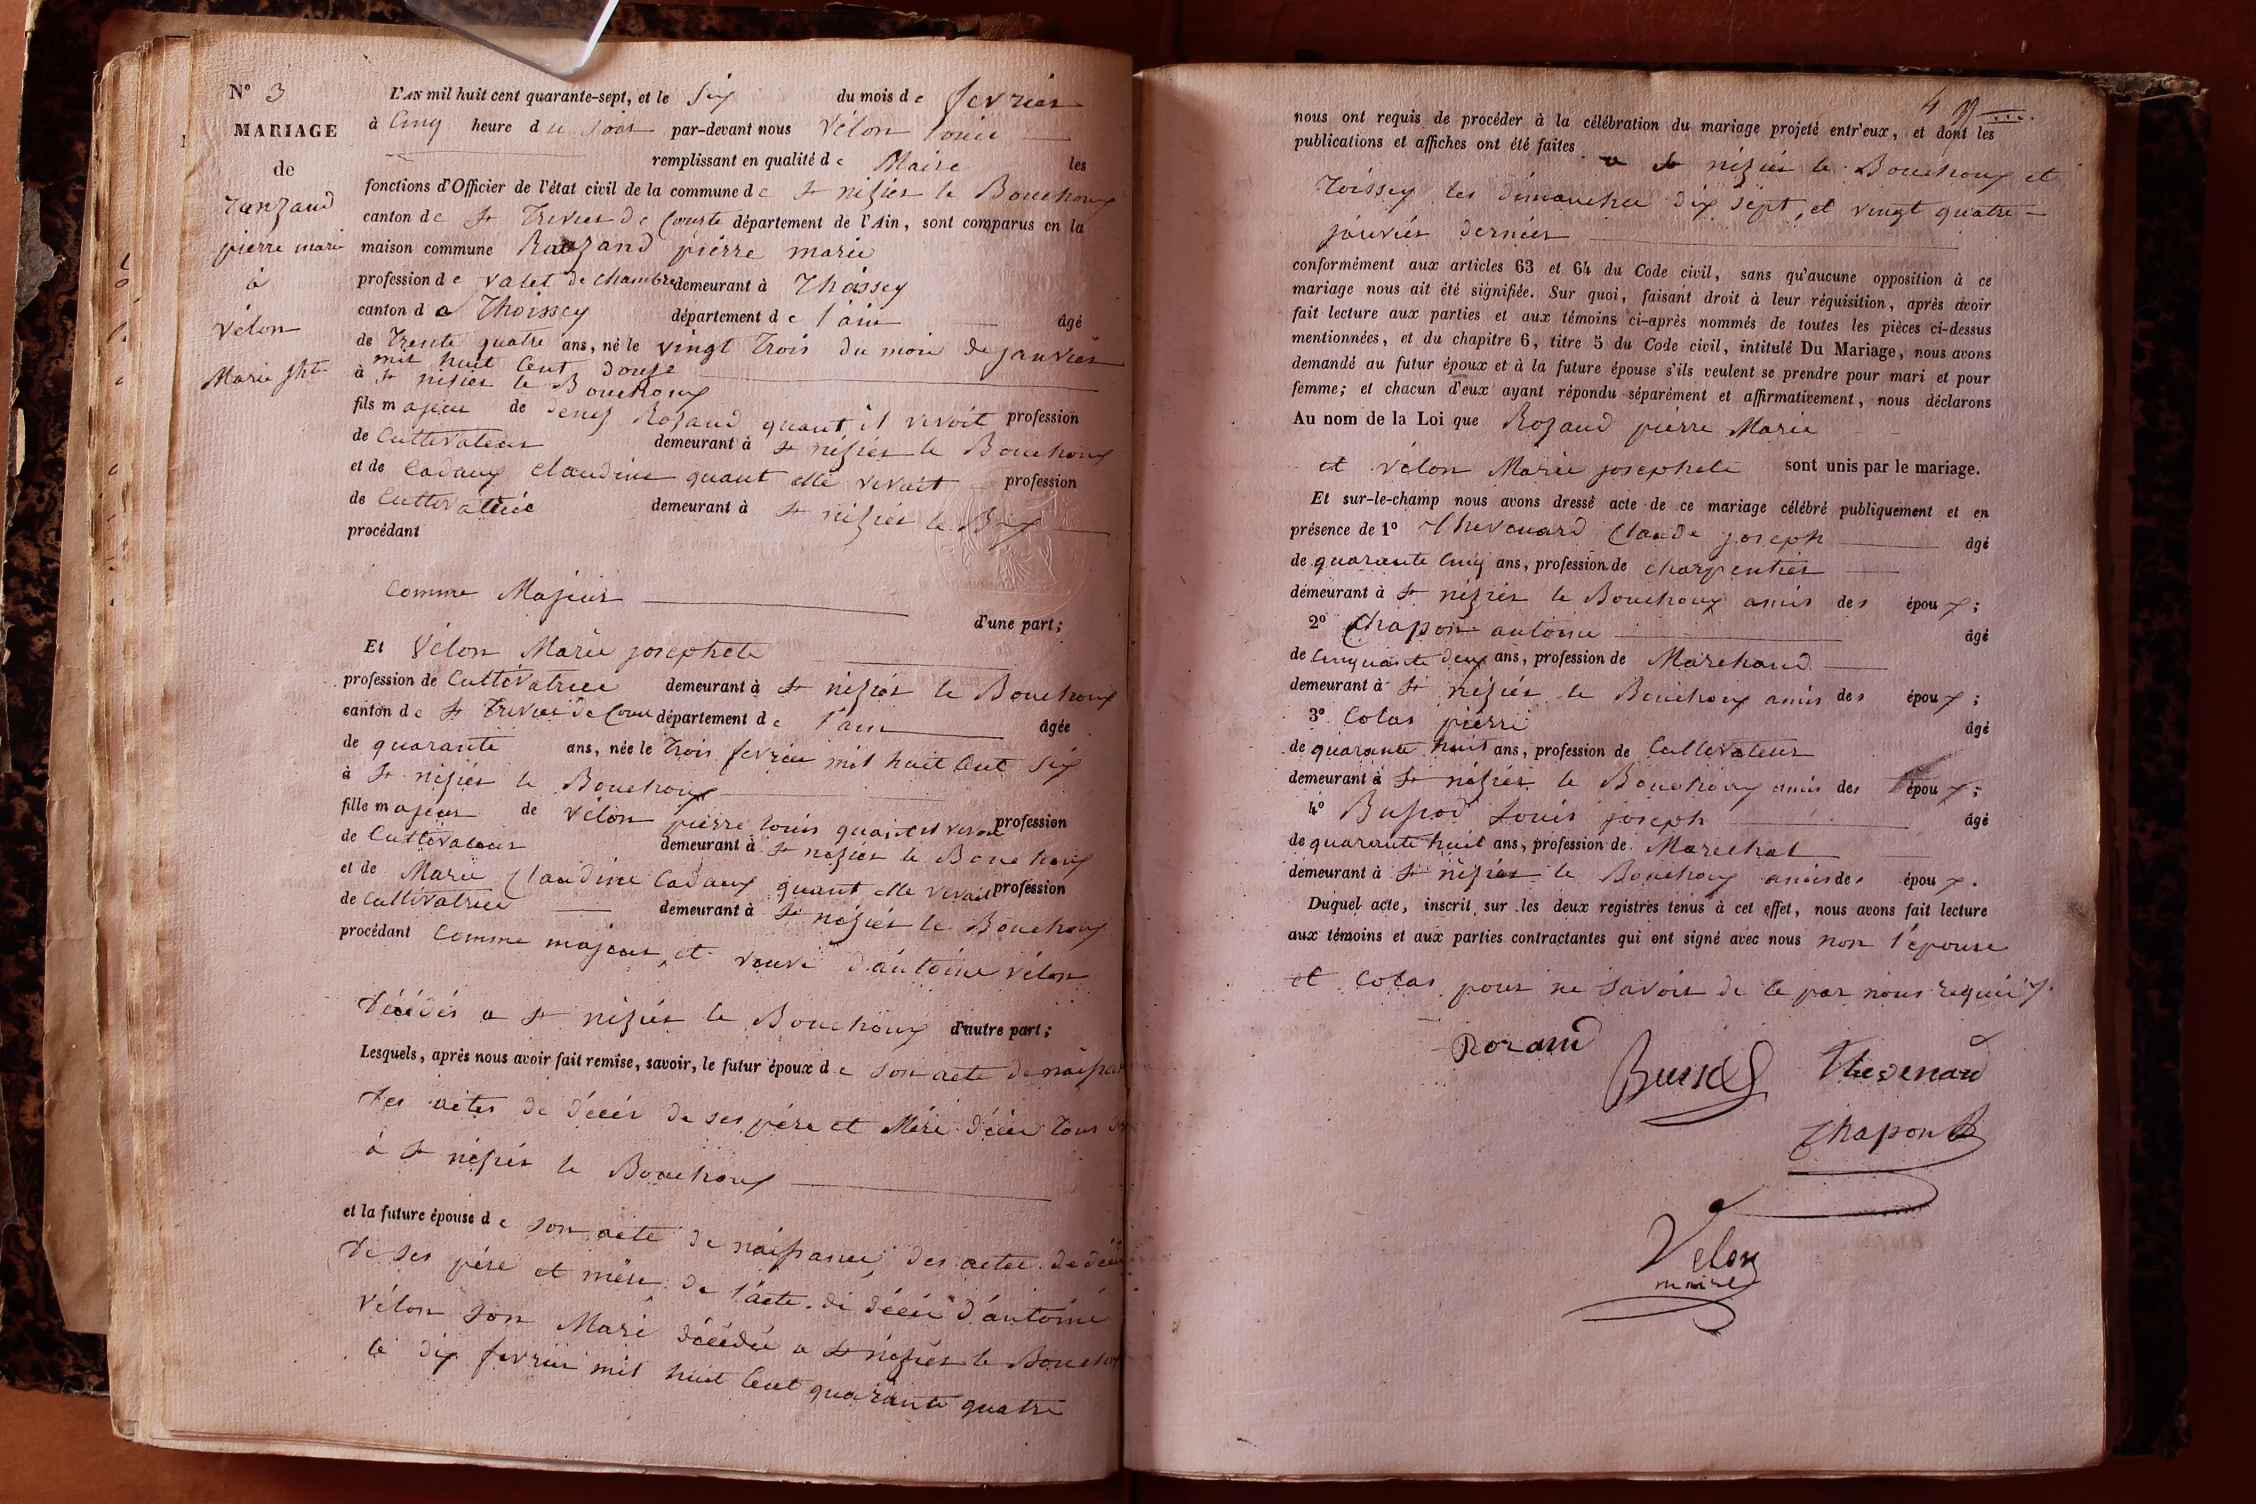 N° 3
MARIAGE
de
pierre marie
à
vélon
Marie Jhte
L'AN mil huit cent quarante-sept, et le Six du mois de fevrier
à Cinq heure du soir par-devant nous vélon louis
remplissant en qualité de Maire les
fonctions d'Officier de l'état civil de la commune de St nizier le Bouchoux
canton de St Trivier de Courte département de l'Ain, sont comparus en la
maison commune Rozand pierre marie
profession de valet de chambre demeurant à Thoissey
canton de Thoissey département de l'ain âgé
de Trente quatre ans, né le vingt Trois du mois de janvier
mil huit Cent douze
à St nizier le Bouchoux
fils majeur de denis Rozand quant il vivoit profession
de Cultivateur demeurant à St nizier le Bouchoux
et de Cadaux Claudine quant elle vivait profession
de Cultivatrice demeurant à St nizier le Bx
procédant
Comme Majeur
d'une part;
Et Vélon Marie josephete
profession de Cultivatrice demeurant à St nizier le Bouchoux
canton de St Trivier de Cour département de l'ain âgée
de quarante ans, née le Trois fevrier mil huit Cent Six
à St nizier le Bouchoux
fille majeur de vélon pierre louis quant il vivoit profession
de Cultivateur demeurant à St nizier le Bouchoux
et de Marie Claudine Cadaux quant elle vivait profession
de Cultivatrice demeurant à St nizier le Bouchoux
procédant Comme majeur, et veuve d'antoine vélon
décédés a St nizier le Bouchoux d'autre part;
Lesquels, après nous avoir fait remise, savoir, le futur époux de son acte de naissan
des actes de décés de ses père et Mère décée tous
à St nizier le Bouchoux
et la future épouse de son acte de naissance, des actes de décé
de ses père et mère de l'acte de décée d'antoine
vélon son Mari décédée a St nizier le Bouchoux
le dix fevrier mil huit Cent quarante quatre
nous ont requis de procéder à la célébration du mariage projeté entr'eux, et dont les
publications et affiches ont été faites a St nizier le Bouchoux et
Toissey les dimanches dix sept, et vingt quatre
janvier dernier
conformément aux articles 63 et 64 du Code civil, sans qu'aucune opposition à ce
mariage nous ait été signifiée. Sur quoi, faisant droit à leur réquisition, après avoir
fait lecture aux parties et aux témoins ci-après nommés de toutes les pièces ci-dessus
mentionnées, et du chapitre 6, titre 5 du Code civil, intitulé Du Mariage, nous avons
demandé au futur époux et à la future épouse s'ils veulent se prendre pour mari et pour
femme; et chacun d'eux ayant répondu séparément et affirmativement, nous déclarons
Au nom de la Loi que Rozand pierre Marie
et vélon Marie josephete sont unis par le mariage.
Et sur-le-champ nous avons dressé acte de ce mariage célébré publiquement et en
présence de 1° Thevenard Claude joseph âgé
de quarante Cinq ans, profession de charpentier
demeurant à St nizier le Bouchoux amis des époux;
2° Chapon antoine âgé
de Cinquante deux ans, profession de Marchand
demeurant à St nizier le Bouchoux amis des époux;
3° Colas pierre âgé
de quarante huit ans, profession de Cultivateur
demeurant à St nizier le Bouchoux amis des époux;
4° Bussod Louis joseph âgé
de quarante huit ans, profession de Marechal
demeurant à St nizier le Bouchoux amis des époux.
Duquel acte, inscrit sur les deux registres tenus à cet effet, nous avons fait lecture
aux témoins et aux parties contractantes qui ont signé avec nous non l'épouse
et Colas pour ne savoir de le par nous requis
Rozand
Thevenard
Chapon
Velon
maire